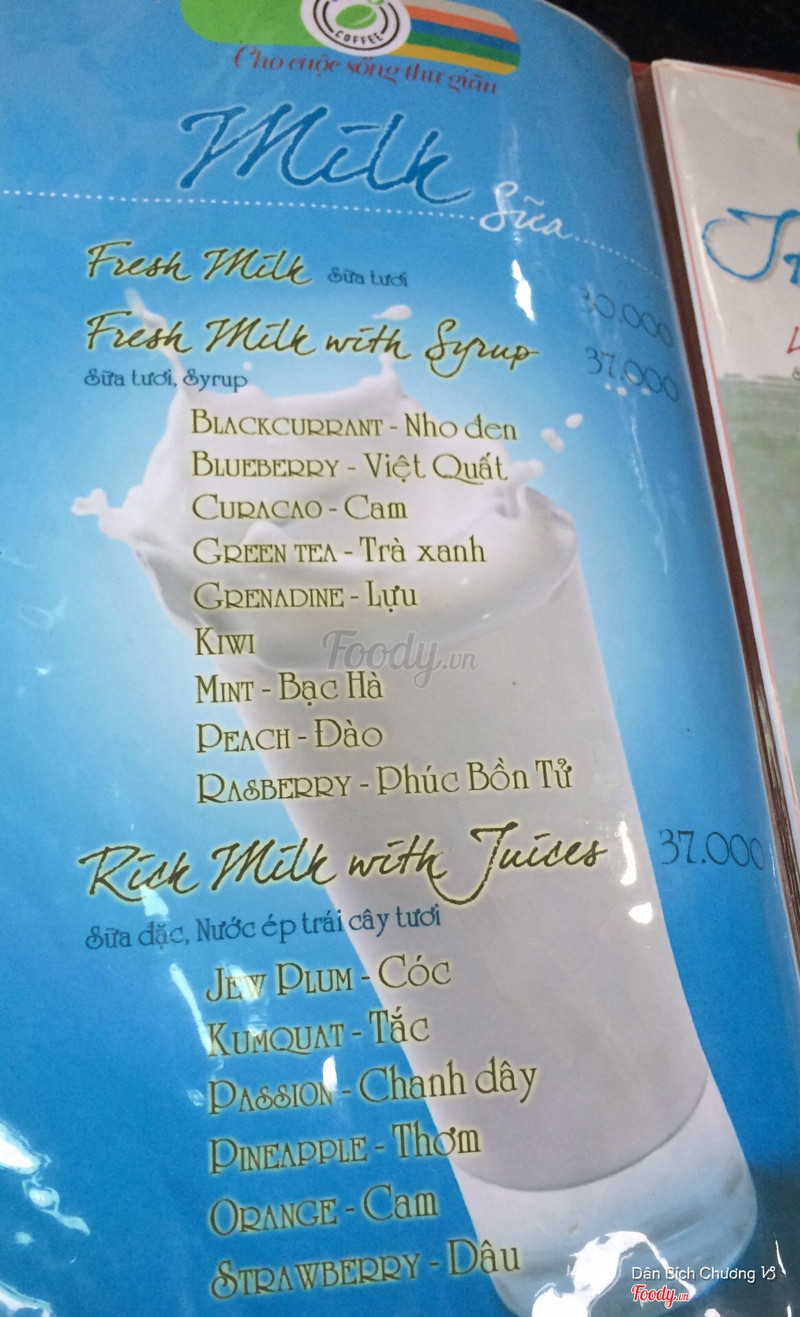 COFFEE
Cho cuộc sống thư giãn
Milk
Sữa
Fresh Milk Sữa tươi 30.000
Fresh Milk with Syrup 37.000
Sữa tươi, Syrup
BLACKCURRANT - Nho đen
BLUEBERRY - Việt Quất
CURACAO - Cam
GREEN TEA - Trà xanh
GRENADINE - Lựu
KIWI
MINT - Bạc Hà
PEACH - Đào
RASBERRY - Phúc Bồn Tử
Rich Milk with Juices 37.000
Sữa đặc, Nước ép trái cây tươi
JEW PLUM - Cóc
KUMQUAT - Tắc
PASSION - Chanh dây
PINEAPPLE - Thơm
ORANGE - Cam
STRAWBERRY - Dâu
Foody.vn
Dân Bích Chương
Foody.vn